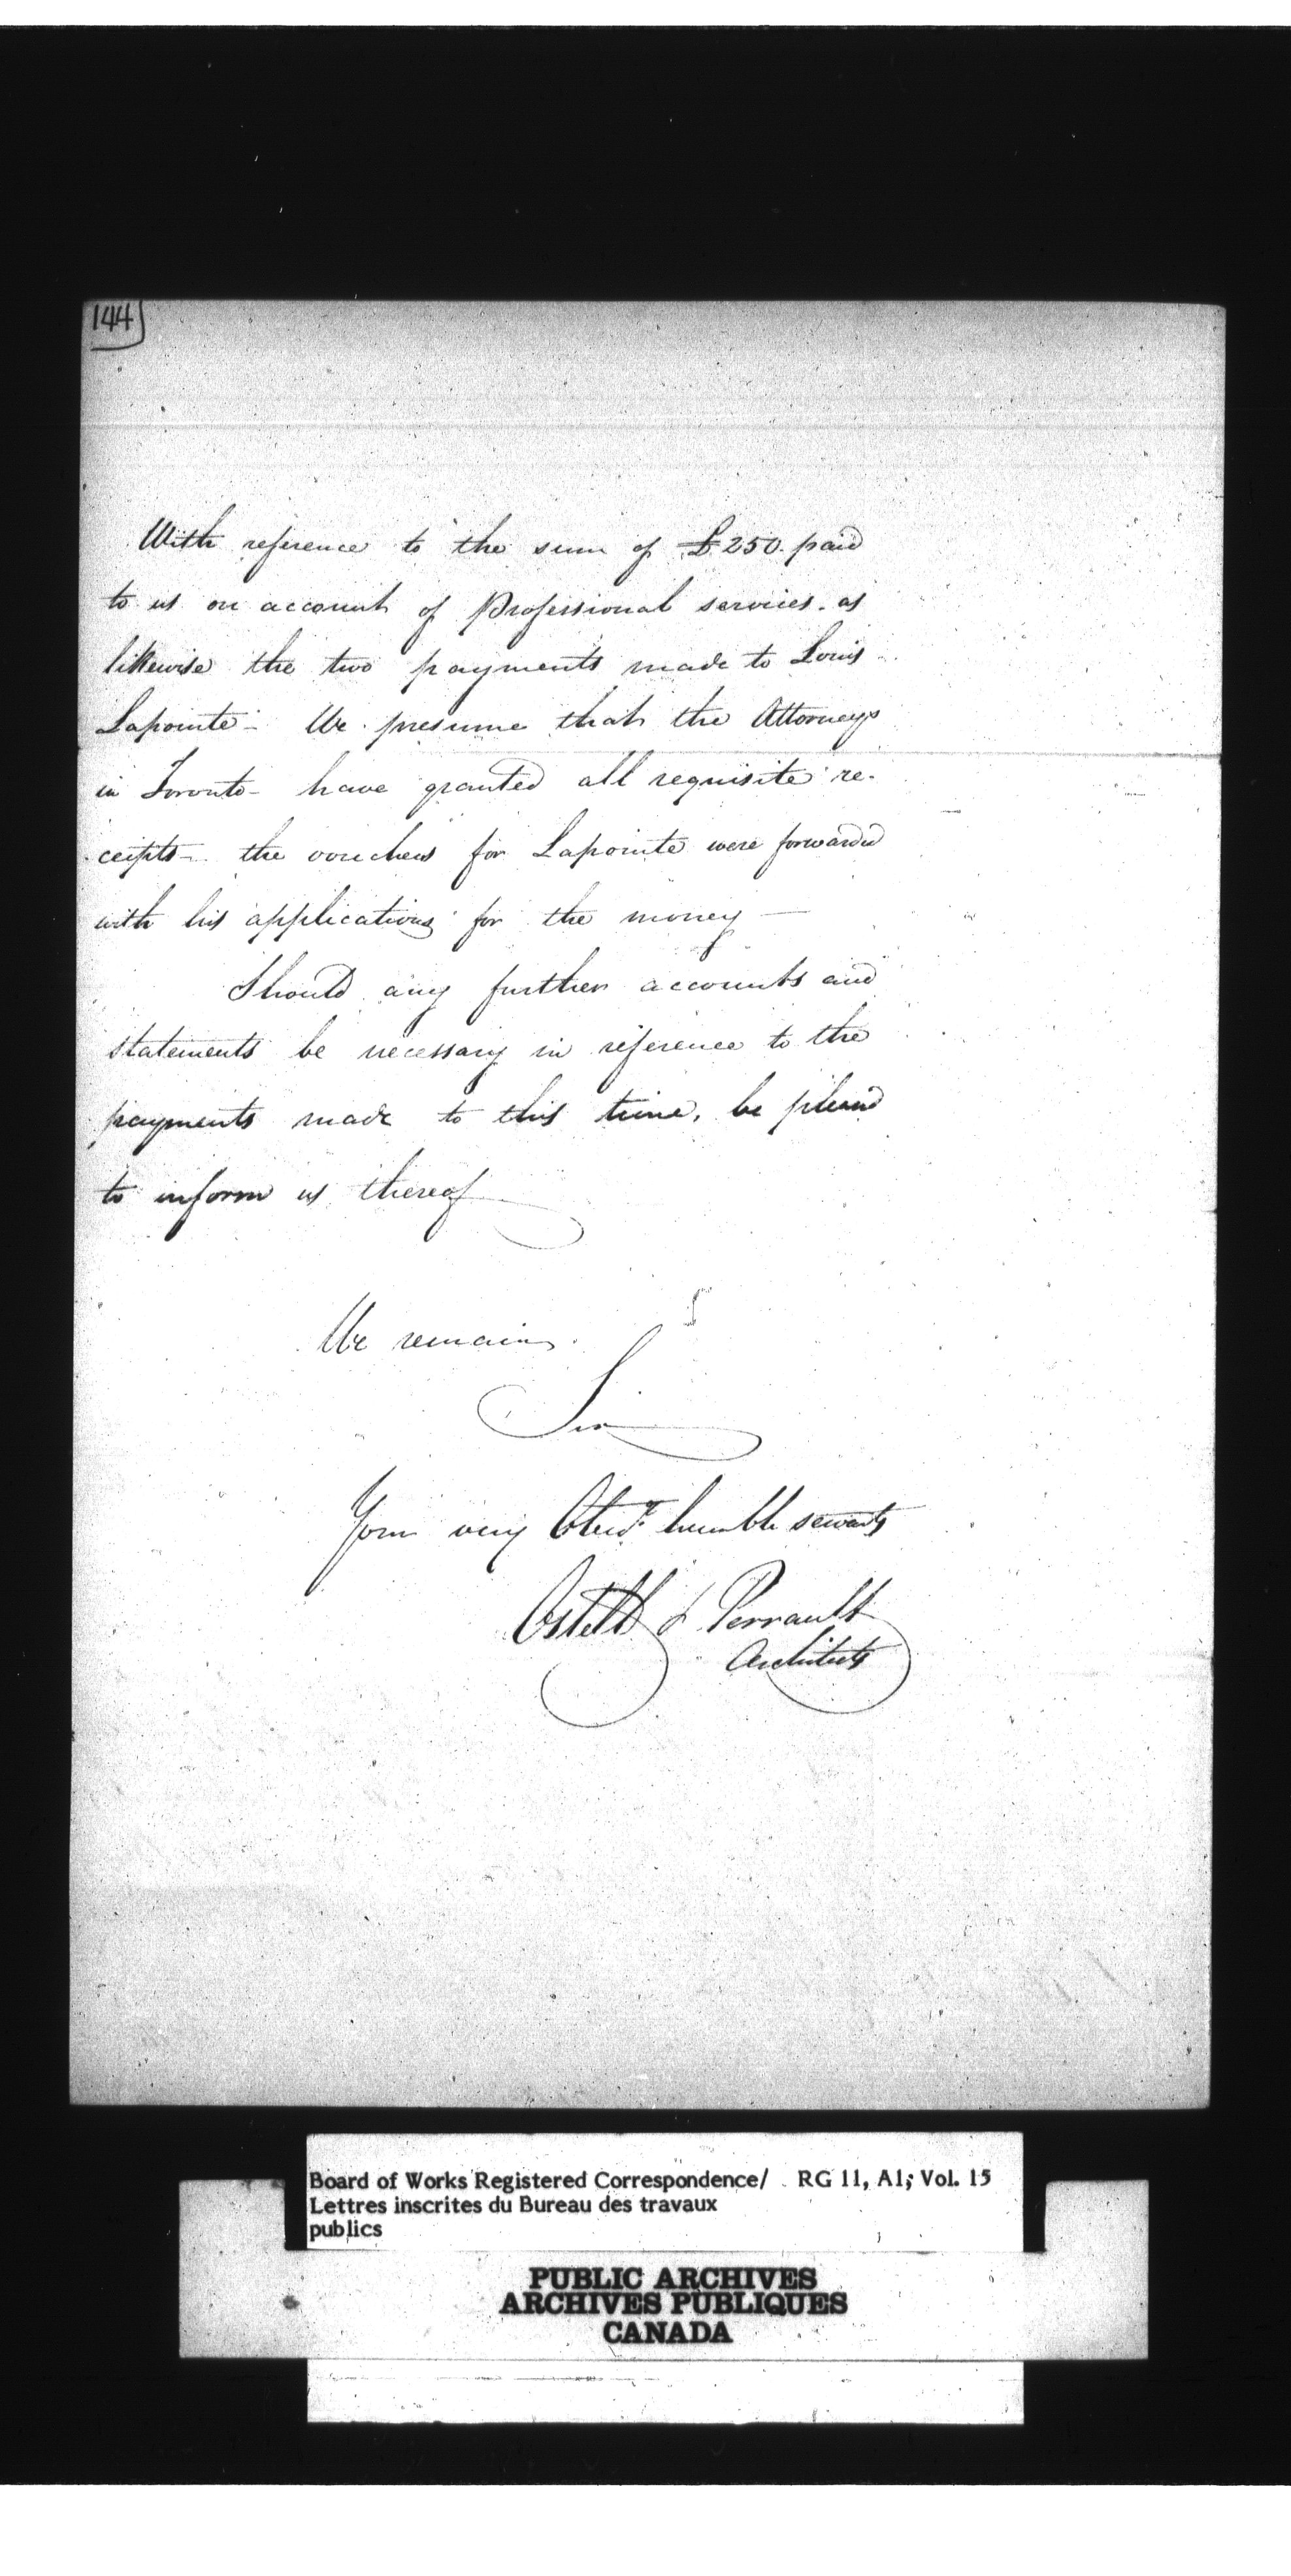 144
With reference to the sum of £250. paid
to us on account of Professional services. as
likewise the two payments made to Louis
Lapointe - We presume that the Attorneys
in Toronto - have granted all requisite re-
ceipts - the vouchers for Lapointe were forwarded
with his applications for the money -
Should any further accounts and
statements be necessary in reference to the
payments made to this time, be pleased
to inform us thereof
We remain
Sir
Your very Obedt. humble servants
Ostell & Perrault
Architects
Board of Works Registered Correspondence/ RG 11, A1; Vol. 15
Lettres inscrites du Bureau des travaux
publics
PUBLIC ARCHIVES
ARCHIVES PUBLIQUES
CANADA